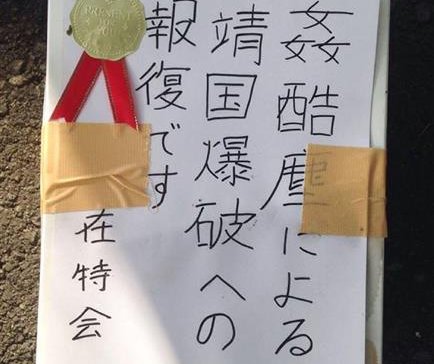 姦酷塵による
靖国爆破への
報復です
在特会
PRESENT
FOR
YOU